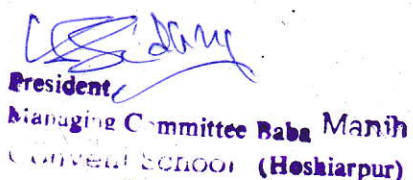 President,
Managing Committee Baba Manih
Convent School (Hoshiarpur)